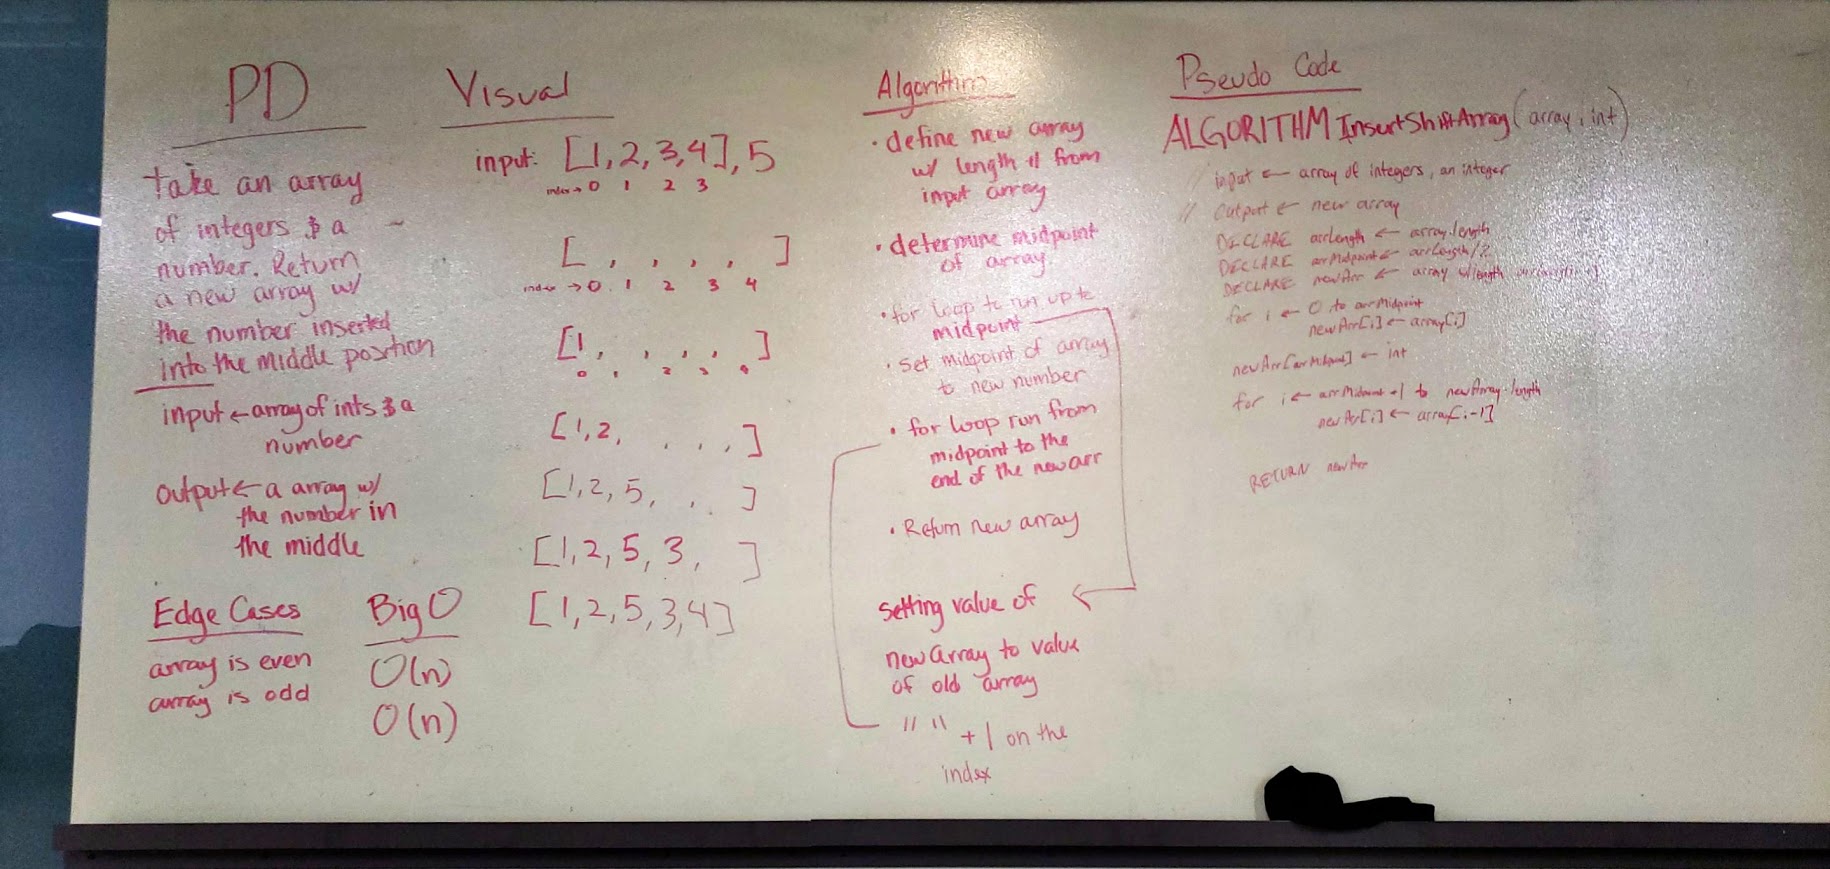 PD
take an array
of integers & a
number. Return
a new array w/
the number inserted
into the middle position
input ← array of ints & a
number
output ← a array w/
the number in
the middle
Edge Cases
array is even
array is odd
Big O
O(n)
O(n)
Visual
input: [1, 2, 3, 4], 5
index → 0 1 2 3
[ , , , , ]
index → 0 1 2 3 4
[1, , , , ]
0 1 2 3 4
[1, 2, , , , ]
[1, 2, 5, , . ]
[1, 2, 5, 3, ]
[1, 2, 5, 3, 4]
Algorithm
· define new array
w/ length +1 from
input array
· determine midpoint
of array
· for loop to run up to
midpoint
· set midpoint of array
to new number
· for loop run from
midpoint to the
end of the new arr
· Return new array
setting value of
new array to value
of old array
" " +1 on the
index
Pseudo Code
ALGORITHM InsertShiftArray (array, int)
// input ← array of integers, an integer
// output ← new array
DECLARE arrLength ← array.length
DECLARE arrMidpoint ← arrLength/2
DECLARE newArr ← array w/length
for i ← 0 to arrMidpoint
newArr[i] ← array[i]
newArr[arrMidpoint] ← int
for i ← arrMidpoint +1 to newArray.length
newArr[i] ← array[i-1]
RETURN newArr